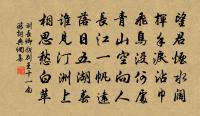 望君煙水闊
揮手淚沾巾
飛鳥沒何處
青山空向人
長江一帆遠
落日五湖春
誰見汀洲上
相思愁白蘋
劉長卿餞別王十一南
游